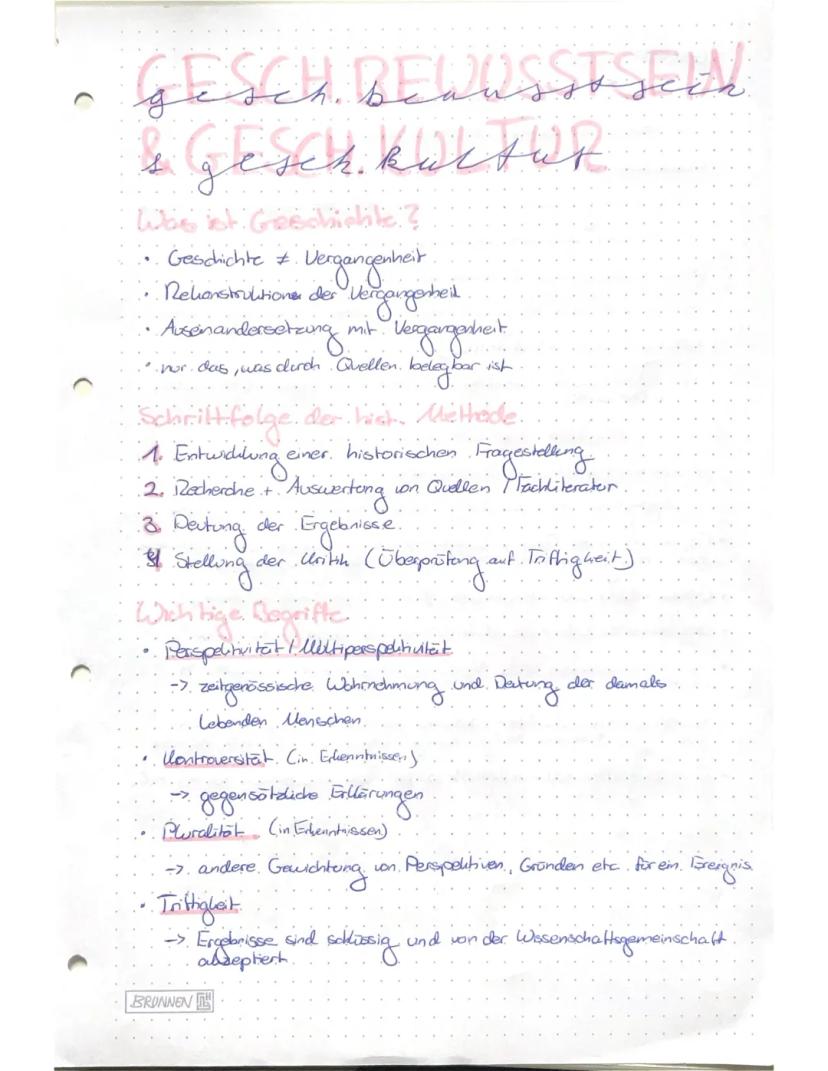 GESCH.BEWUSSTSEIN
gesch. bewusstsein
& GESCH.KULTUR
& gesch. kultur
Was ist Geschichte?
• Geschichte ≠ Vergangenheit
• Rekonstruktion der Vergangenheit
• Auseinandersetzung mit Vergangenheit
• nur das, was durch Quellen belegbar ist
Schrittfolge der hist. Methode
1. Entwicklung einer historischen Fragestellung
2. Recherche + Auswertung von Quellen / Fachliteratur
3. Deutung der Ergebnisse
4. Stellung der Kritik (Überprüfung auf Triftigkeit)
Wichtige Begriffe
• Perspektivität / Multiperspektivität
-> zeitgenössische Wahrnehmung und Deutung der damals
lebenden Menschen
• Kontroversität (in Erkenntnissen)
-> gegensätzliche Erklärungen
• Pluralität (in Erkenntnissen)
-> andere Gewichtung von Perspektiven, Gründen etc. für ein Ereignis
• Triftigkeit
-> Ergebnisse sind schlüssig und von der Wissenschaftsgemeinschaft
akzeptiert
BRUNNEN